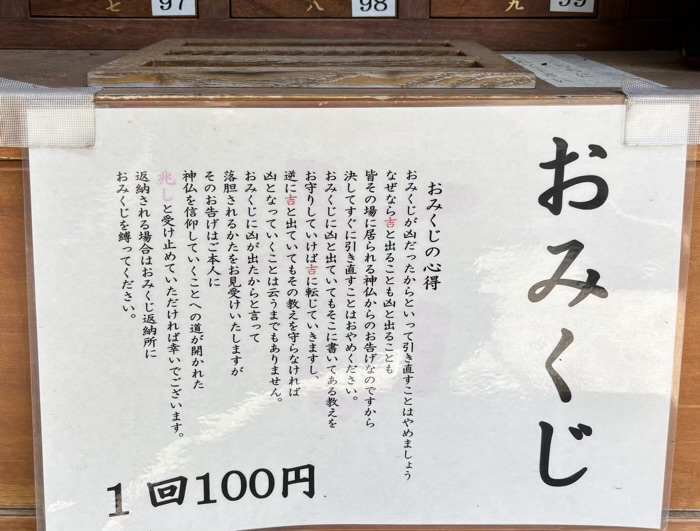 七 97
八 98
九 99
おみくじ
おみくじの心得
おみくじが凶だったからといって引き直すことはやめましょう
なぜなら吉と出ることも凶と出ることも
皆その場に居られる神仏からのお告げなのですから
決してすぐに引き直すことはおやめください。
おみくじに凶と出ていてもそこに書いてある教えを
お守りしていけば吉に転じていきますし、
逆に吉と出ていてもその教えを守らなければ
凶となっていくことは云うまでもありません。
おみくじに凶が出たからと言って
落胆されるかたをお見受けいたしますが
そのお告げはご本人に
神仏を信仰していくことへの道が開かれた
兆しと受け止めていただければ幸いでございます。
返納される場合はおみくじ返納所に
おみくじを縛ってください。
1回100円